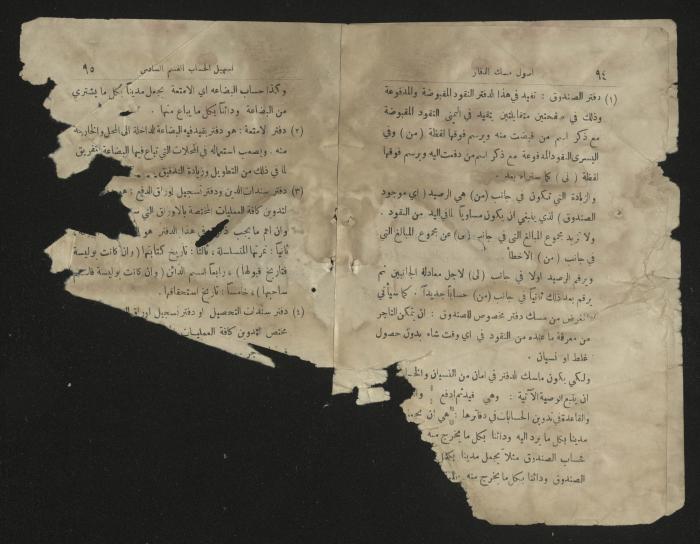 ٩٤ اصول مسك الدفاتر
(١) دفتر الصندوق : تقيد في هذا الدفتر النقود المقبوضة والمدفوعة
وذلك في صفحتين متقابلتين يقيد في أيمنى النقود المقبوضة
مع ذكر اسم من قبضت منه ويرسم فوقها لفظة (من) وفي
اليسرى النقود المدفوعة مع ذكر اسم من دفعت اليه ويرسم فوقها
لفظة (لى) كما سنراه بعد .
والزيادة التي تتكون في جانب (من) هي الرصيد ( اي موجود
الصندوق ) الذي ينبغي ان يكون مساوياً لما في اليد من النقود .
ولا تزيد مجموع المبالغ التي في جانب (لى) عن مجموع المبالغ التي
في جانب ( من ) الا خطأ
ويرقم الرصيد اولا في جانب (لى) لاجل معادلة الجانبين ثم
يرقم بعد ذلك ثانياً في جانب (من) حساباً جديداً . كما سيأتي
الغرض من مسك دفتر مخصوص للصندوق : ان يتمكن التاجر
من معرفة ما عنده من النقود في اي وقت شاء بدون حصول
غلط او نسيان .
ولكي يكون ماسك الدفتر في امان من النسيان والخطا
ان يلتزم الوصية الآتية : وهي قيد ثم ادفع
والقاعدة في تدوين الحسابات في دفاترها : هي ان تجعل
مدينا بكل ما يرد اليه ودائنا بكل ما يخرج منه
فحساب الصندوق مثلا يجعل مدينا بكل
الصندوق ودائنا بكل ما يخرج منه
تسهيل الحساب القسم السادس ٩٥
وكذا حساب البضاعه اي الامتعة يجعل مديناً بكل ما يشترى
من البضاعة ودائناً بكل ما يباع منها .
(٢) دفتر الامتعة : هو دفتر يقيد فيه البضاعة الداخلة الى المحل والخارجة
منه . ويصعب استعماله في المحلات التي تباع فيها البضاعة بالتفريق
لما في ذلك من التطويل وزيادة التدقيق
(٣) دفتر سندات الدين ودفتر تسجيل اوراق الدفع : هو
لتدوين كافة العمليات المختصة بالاوراق التي
وان اهم ما يجب في هذا الدفتر هو
ثانياً : نمرتها المتسلسلة ، ثالثا : تاريخ كتابتها ( وان كانت بوليسة
فتاريخ قبولها ) ، رابعا اسم الدائن ( وان كانت بوليسة فاسم
ساحبها ) ، خامسا : تاريخ استحقاقها .
(٤) دفتر سندات التحصيل او دفتر تسجيل اوراق
مختص لتدوين كافة العمليات